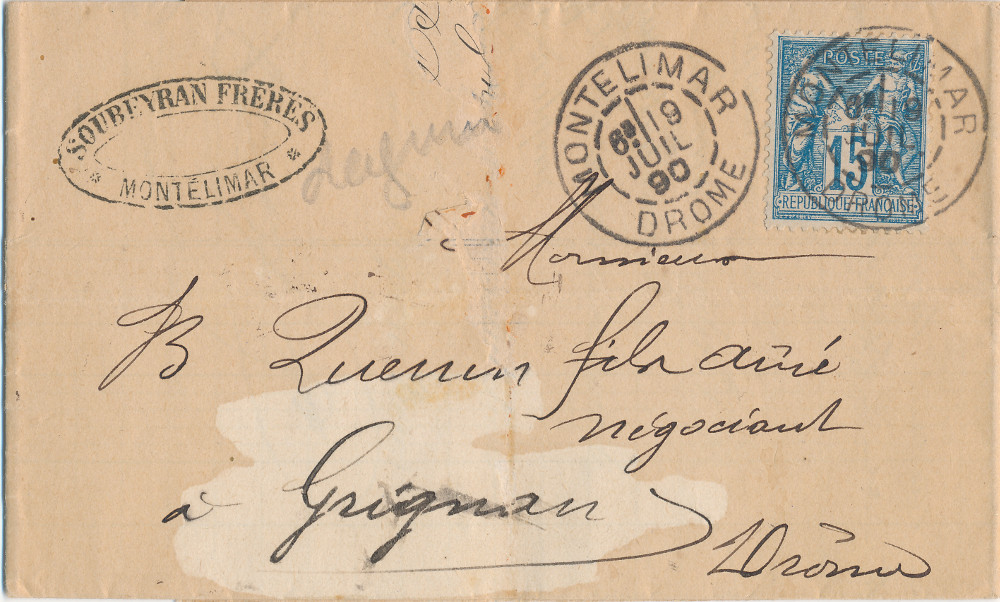 SOUBEYRAN FRÈRES
MONTÉLIMAR
MONTELIMAR
6E 19
JUIL
90
DROME
POSTES
15
REPUBLIQUE FRANÇAISE
MONTELIMAR
19
90
Monsieur
B Quenin fils aîné
négociant
à Grignan
Drôme